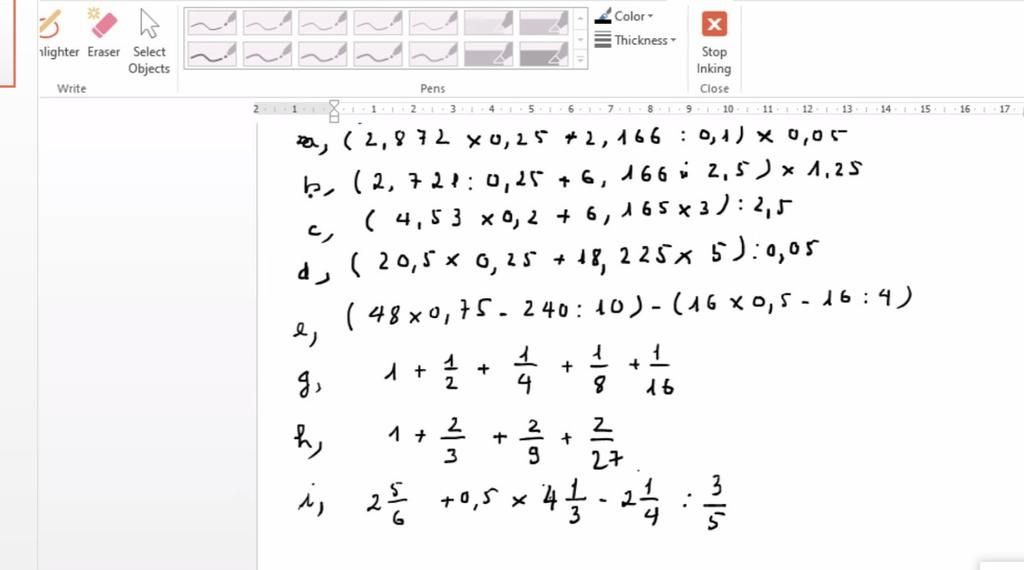 hlighter Eraser Select Objects Color Thickness Stop Inking
Write Pens Close
2 1 1 2 3 4 5 6 7 8 9 10 11 12 13 14 15 16 17
a, (2,872 × 0,25 + 2,166 : 0,1) × 0,05
b, (2,721 : 0,25 + 6,166 : 2,5) × 1,25
c, (4,53 × 0,2 + 6,165 × 3) : 2,5
d, (20,5 × 0,25 + 18,225 × 5) : 0,05
e, (48 × 0,75 - 240 : 10) - (16 × 0,5 - 16 : 4)
g, 1 + 1/2 + 1/4 + 1/8 + 1/16
h, 1 + 2/3 + 2/9 + 2/27
i, 2 5/6 + 0,5 × 4 1/3 - 2 1/4 : 3/5